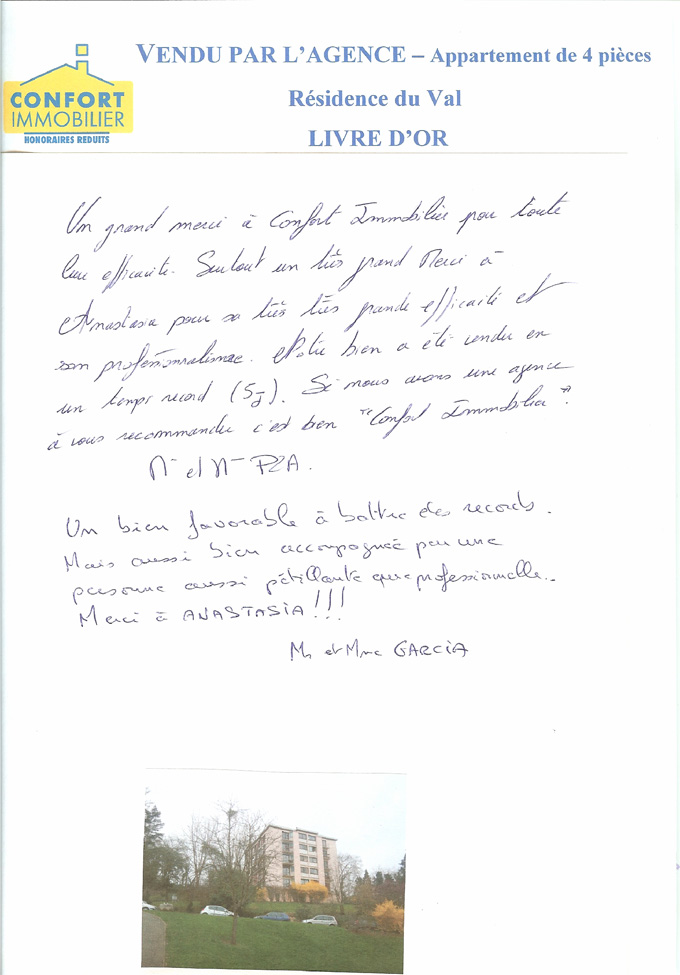 VENDU PAR L'AGENCE – Appartement de 4 pièces
CONFORT
IMMOBILIER
HONORAIRES REDUITS
Résidence du Val
LIVRE D'OR
Un grand merci à Confort Immobilier pour toute
leur efficacité. Surtout un très grand Merci à
Anastasia pour sa très très grande efficacité et
son professionnalisme. Notre bien a été vendu en
un temps record (5j). Si nous avons une agence
à vous recommander c'est bien "Confort Immobilier".
et
Un bien favorable à battre des records.
Mais aussi bien accompagnée par une
personne aussi pétillante que professionnelle..
Merci à ANASTASIA !!!
Mr et Mme GARCIA